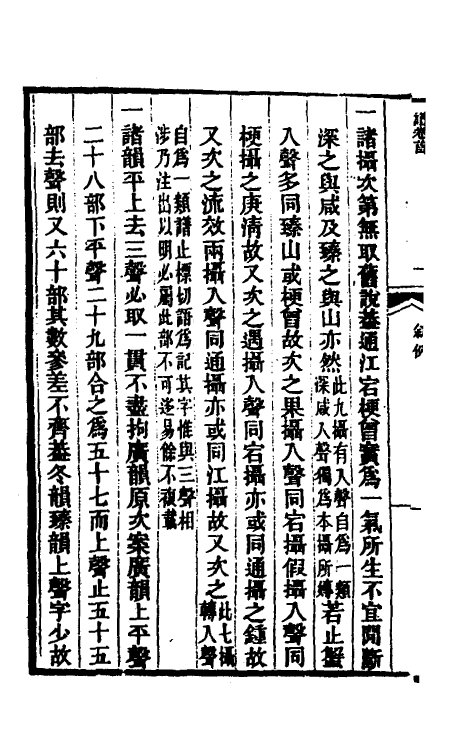 一諸攝次第無取舊說葢通江宕梗曾實爲一氣所生不宜間斷
深之與咸及臻之與山亦然此九攝有入聲自爲一類深咸入聲獨爲本攝所轉若止蟹
入聲多同臻山或梗曾故次之果攝入聲同宕攝假攝入聲同
梗攝之庚清故又次之遇攝入聲同宕攝亦或同通攝之鍾故
又次之流效兩攝入聲同通攝亦或同江攝故又次之此七攝轉入聲
自爲一類譜止標切語爲記其字惟與三聲相涉乃注出以明必屬此部不可遂易餘不複載
一諸韻平上去三聲必取一貫不盡拘廣韻原次案廣韻上平聲
二十八部下平聲二十九部合之爲五十七而上聲止五十五
部去聲則又六十部其數參差不齊葢冬韻臻韻上聲字少故